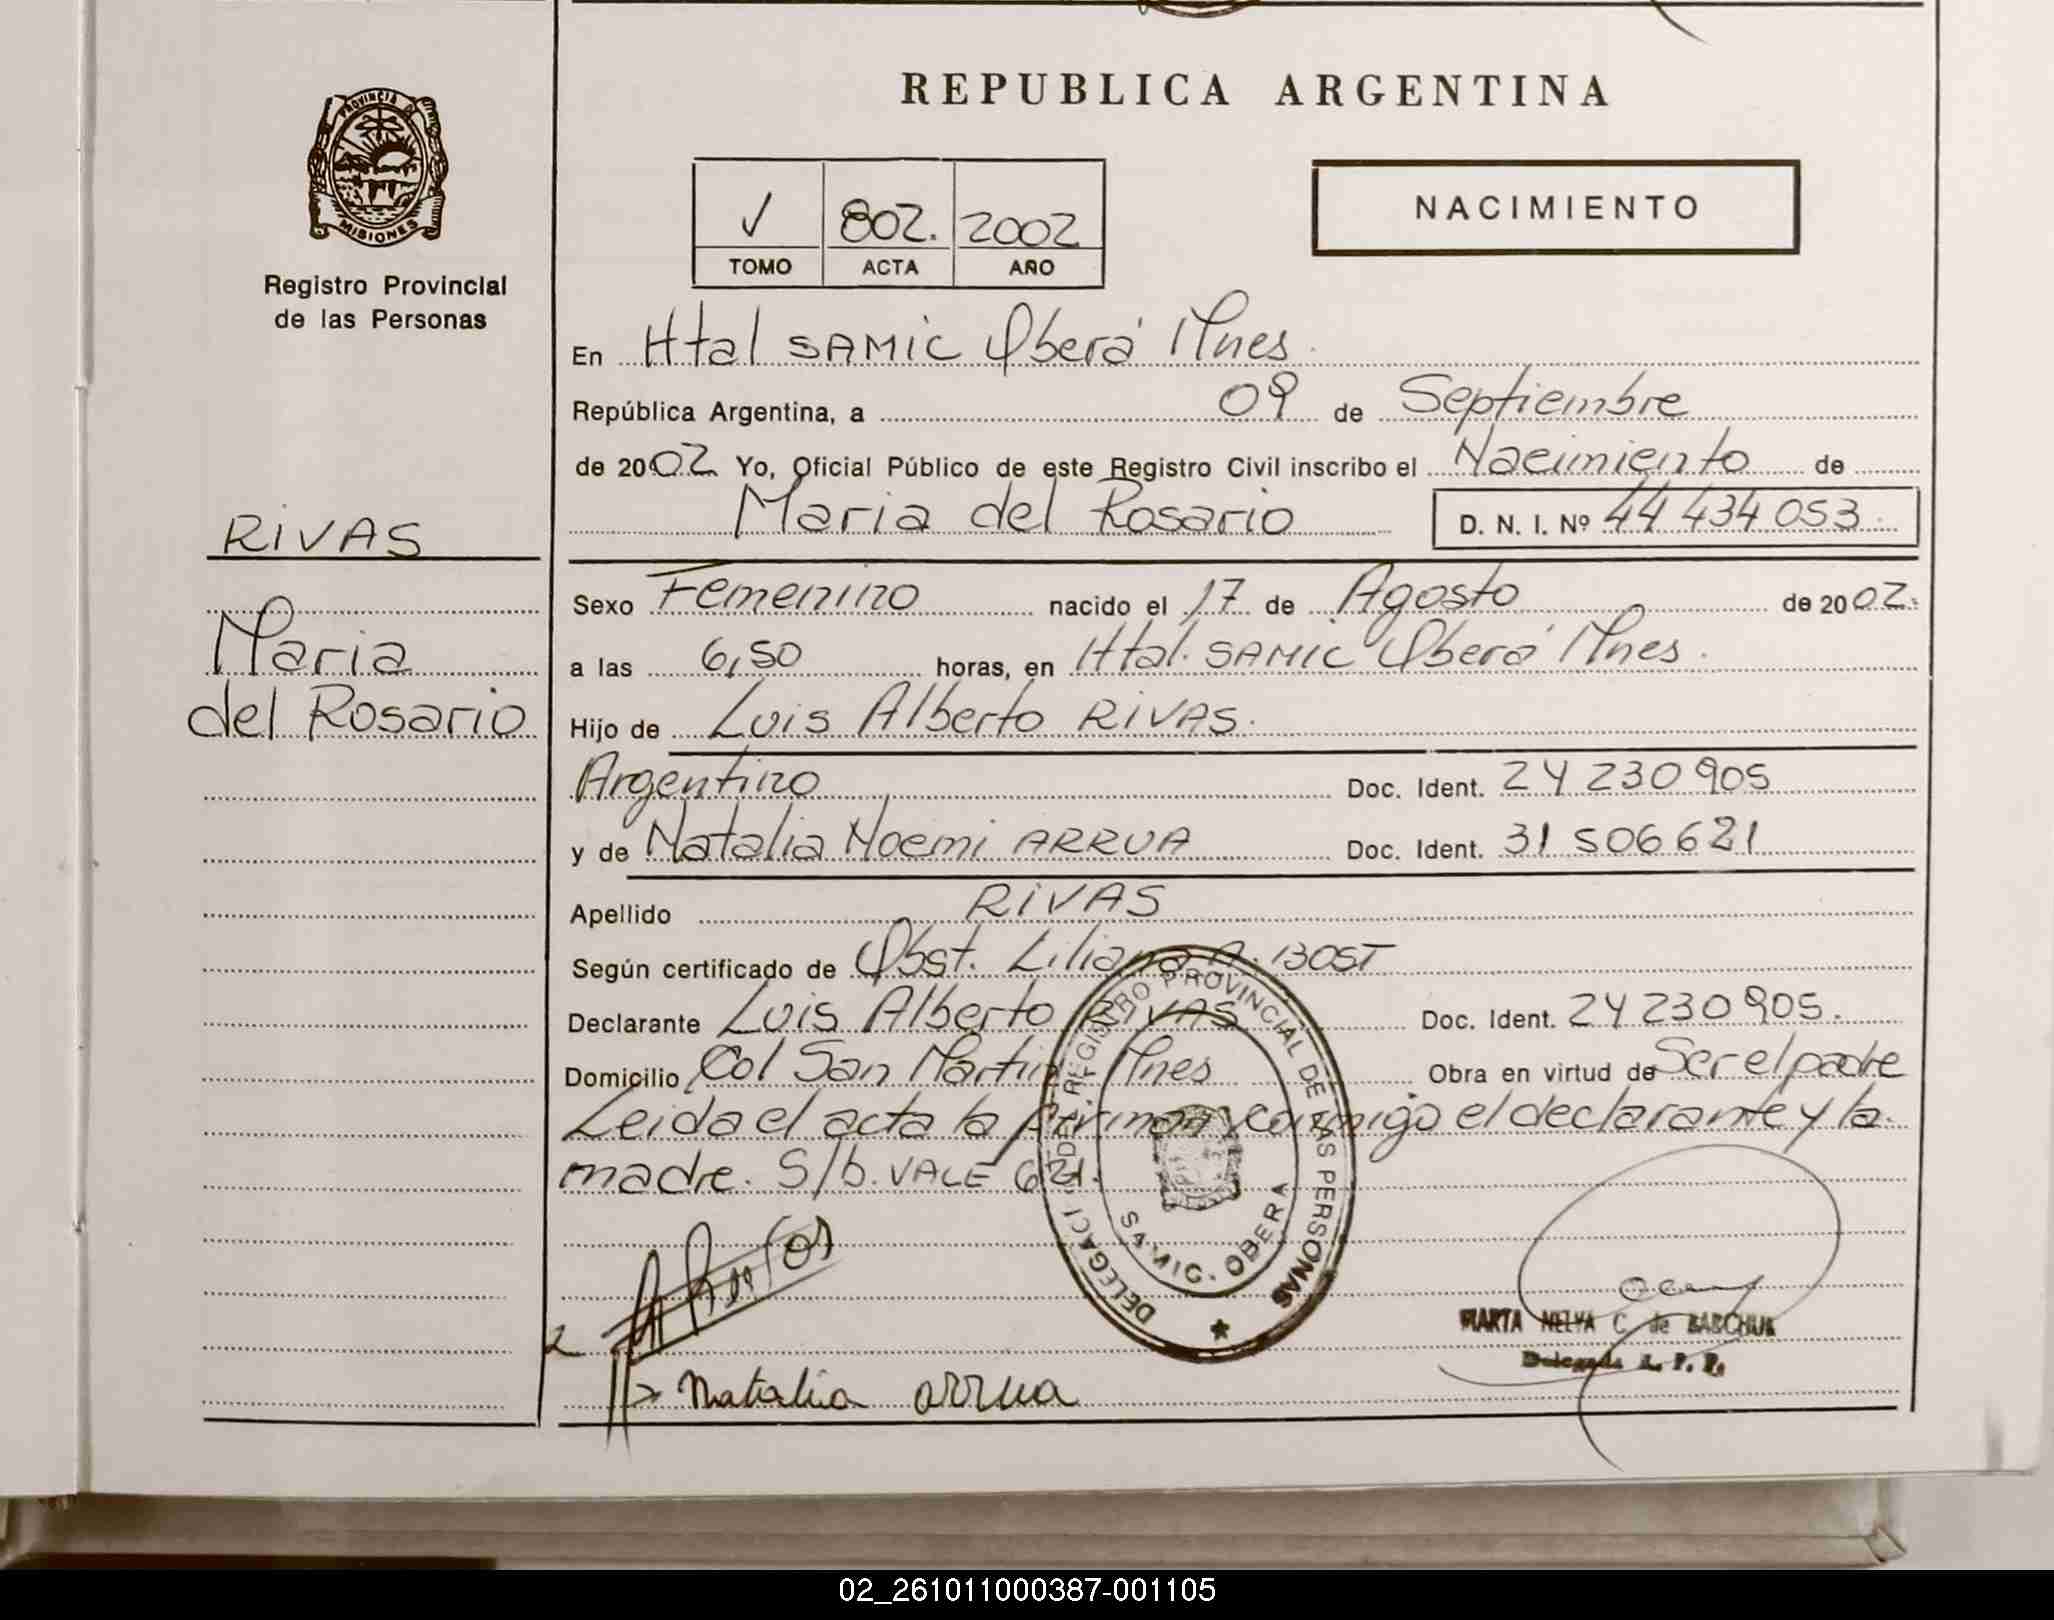 REPUBLICA ARGENTINA
PROVINCIA DE
MISIONES
Registro Provincial
de las Personas
V 802. 2002
TOMO ACTA AÑO
NACIMIENTO
En Htal SAMIC Oberá Mnes.
República Argentina, a 09 de Septiembre
de 2002 Yo, Oficial Público de este Registro Civil inscribo el Nacimiento de
Maria del Rosario D. N. I. Nº 44 434 053.
RIVAS
Maria
del Rosario
Sexo Femenino nacido el 17 de Agosto de 2002.
a las 6,50 horas, en Htal. SAMIC Oberá Mnes.
Hijo de Luis Alberto RIVAS.
Argentino Doc. Ident. 24 230 905
y de Natalia Noemi ARRUA Doc. Ident. 31 506 621
Apellido RIVAS
Según certificado de Obst. Liliana A. BOST
Declarante Luis Alberto RIVAS Doc. Ident. 24 230 905.
Domicilio Col San Martin Mnes Obra en virtud de Ser el padre
Leida el acta la firman conmigo el declarante y la
madre. S/b. VALE 621.
REGISTRO PROVINCIAL DE LAS PERSONAS
SAMIC. OBERA
Natalia arrua
MARTA NELYA C. de BABCHUK
Delegada R. P. P.
02_261011000387-001105